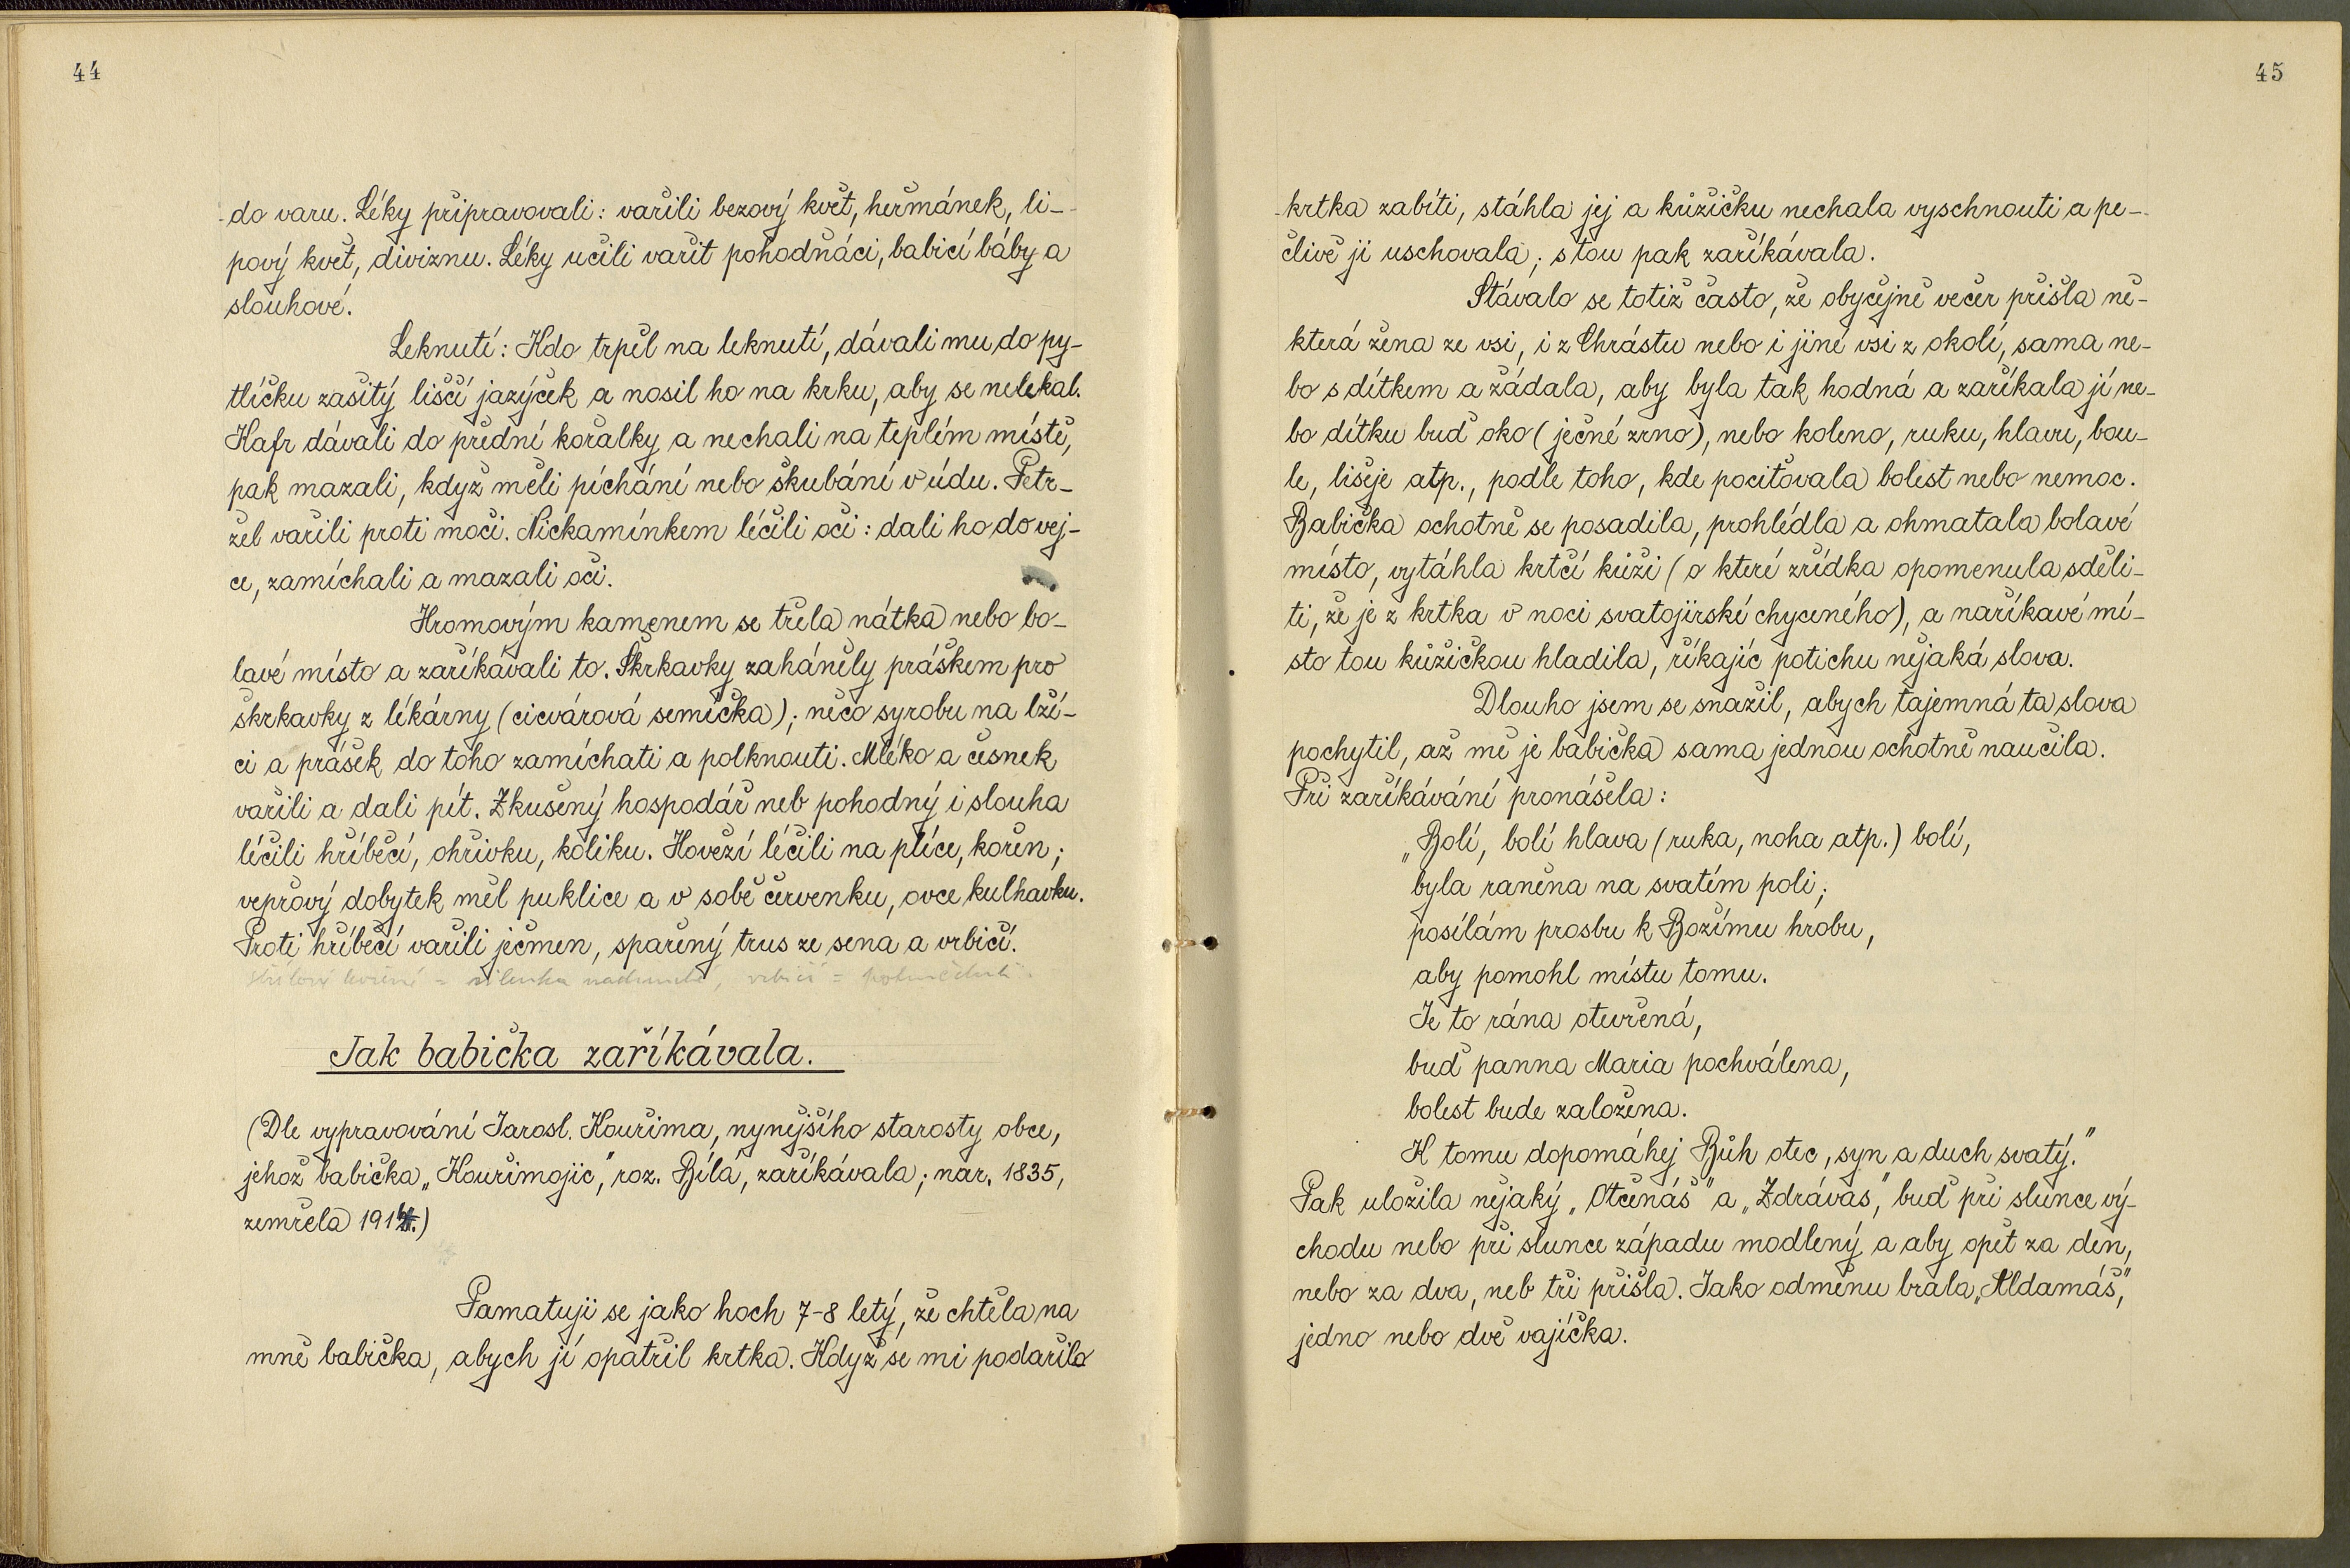 44
do varu. Léky připravovali: vařili bezový květ, heřmánek, li-
pový květ, diviznu. Léky učili vařit pohodňáci, babicí báby a
slouhové.
Leknutí: Kdo trpěl na leknutí, dávali mu do py-
tlíčku zašitý liščí jazýček a nosil ho na krku, aby se nelekal.
Kafr dávali do přední kořalky a nechali na teplém místě,
pak mazali, když měli píchání nebo škubání v údu. Petr-
žel vařili proti moči. Nickamínkem léčili oči: dali ho do vej-
ce, zamíchali a mazali oči.
Hromovým kamenem se třela nátka nebo bo-
lavé místo a zaříkávali to. Škrkavky zaháněly práškem pro
škrkavky z lékárny (cicvárová semíčka); něco syrobu na lží-
ci a prášek do toho zamíchati a polknouti. Mléko a česnek
vařili a dali pít. Zkušený hospodář neb pohodný i slouha
léčili hříběcí, ohřivku, koliku. Hovězí léčili na plíce, kořen;
vepřový dobytek měl puklice a v sobě červenku, ovce kulhavku.
Proti hříběcí vařili ječmen, spařený trus ze sena a vrbičí.
Jak babička zaříkávala.
(Dle vypravování Jarosl. Kouřima, nynějšího starosty obce,
jehož babička „Kouřimojic", roz. Bílá, zaříkávala; nar. 1835,
zemřela
Pamatuji se jako hoch 7-8 letý, že chtěla na
mně babička, abych jí opatřil krtka. Když se mi podařilo
45
krtka zabíti, stáhla jej a kůžičku nechala vyschnouti a pe-
člivě ji uschovala; s tou pak zaříkávala.
Stávalo se totiž často, že obyčejně večer přišla ně-
která žena ze vsi, i z Chrástu nebo i jiné vsi z okolí, sama ne-
bo s dítkem a žádala, aby byla tak hodná a zaříkala jí ne-
bo dítku buď oko (ječné zrno), nebo koleno, ruku, hlavu, bou-
le, lišeje atp., podle toho, kde pociťovala bolest nebo nemoc.
Babička ochotně se posadila, prohlédla a ohmatala bolavé
místo, vytáhla krtčí kůži (o které zřídka opomenula sděli-
ti, že je z krtka v noci svatojirské chyceného), a naříkavé mí-
sto tou kůžičkou hladila, říkajíc potichu nějaká slova.
Dlouho jsem se snažil, abych tajemná ta slova
pochytil, až mě je babička sama jednou ochotně naučila.
Při zaříkávání pronášela:
„Bolí, bolí hlava (ruka, noha atp.) bolí,
byla raněna na svatém poli;
posílám prosbu k Božímu hrobu,
aby pomohl místu tomu.
Je to rána otevřená,
buď panna Maria pochválena,
bolest bude založena.
K tomu dopomáhej Bůh otec, syn a duch svatý."
Pak uložila nějaký „Otčenáš" a „Zdrávas", buď při slunce vý-
chodu nebo při slunce západu modlený a aby opět za den,
nebo za dva, neb tři přišla. Jako odměnu brala „Aldamáš",
jedno nebo dvě vajíčka.